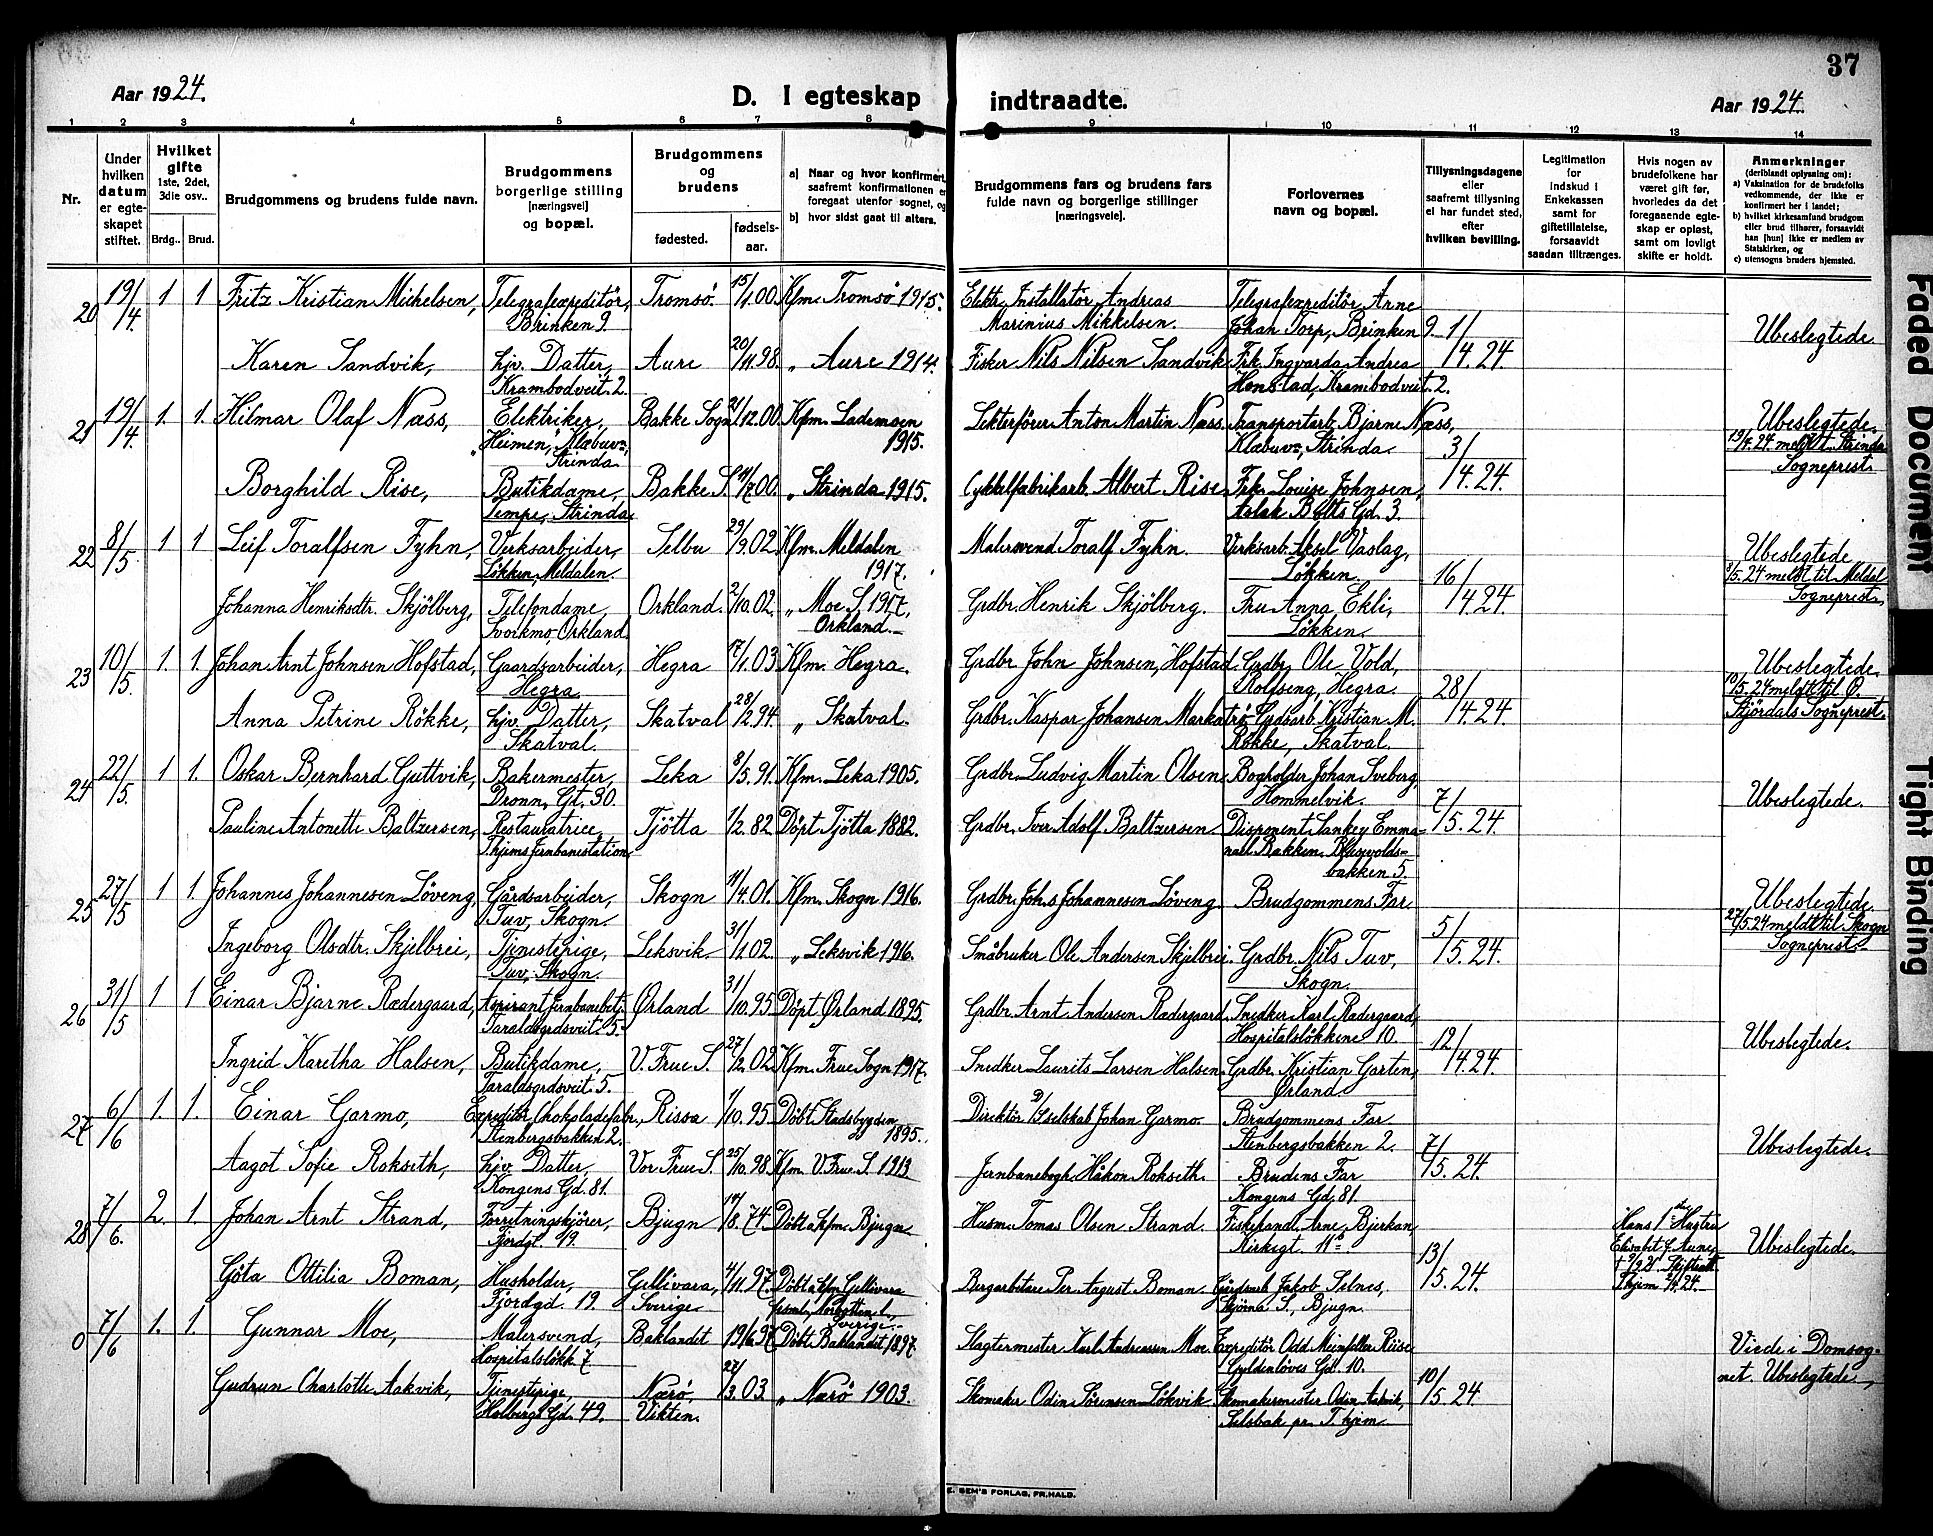 37
Aar 1924.
D. I egteskap indtraadte.
Aar 1924.
1 2 3 4 5 6 7 8 9 10 11 12 13 14
Nr.
Under hvilken datum er egteskapet stiftet.
Hvilket gifte 1ste, 2det, 3die osv..
Brdg.. Brud.
Brudgommens og brudens fulde navn.
Brudgommens borgerlige stilling [næringsvei] og bopæl.
Brudgommens og brudens
fødested.
fødselsaar.
a) Naar og hvor konfirmert, saafremt konfirmationen er foregaat utenfor sognet, og
b) hvor sidst gaat til alters.
Brudgommens fars og brudens fars fulde navn og borgerlige stillinger [næringsveie].
Forlovernes navn og bopæl.
Tillysningsdagene eller saafremt tillysning ei har fundet sted, efter hvilken bevilling.
Legitimation for indskud i Enkekassen samt for giftetillatelse, forsaavidt saadan tiltrænges.
Hvis nogen av brudefolkene har været gift før, hvorledes da det foregaaende egteskap er opløst, samt om lovligt skifte er holdt.
Anmerkninger (deriblandt oplysning om):
a) Vaksination for de brudefolks vedkommende, der ikke er konfirmert her i landet;
b) hvilket kirkesamfund brudgom eller brud tilhører, forsaavidt han [hun] ikke er medlem av Statskirken, og
c) utensogns bruders hjemsted.
20 19/4 1 1 Fritz Kristian Michelsen, Telegrafexpeditör, Brinken 9. Tromsö. 15/1.00 Kfm. Tromsö 1915. Elektr. Installatör Andreas Marinius Mikkelsen. Telegrafexpeditör Arne Johan Torp, Brinken 9. 1/4.24. Ubeslegtede
Karen Sandvik, hjv. Datter, Krambodveit. 2. Aure 20/11.98. „ Aure 1914. Fisker Nils Nilsen Sandvik Frk. Ingvarda Andrea Henstad, Krambodveit. 2.
21 19/4 1. 1. Hilmar Olaf Næss, Elektriker, "Heimen", Klæbuv., Strinda Bakke Sogn 21/12.00 Kfm. Lademoen 1915. Lekterfører Anton Martin Næss. Transportarb. Bjarne Næss, Klæbuv., Strinda. 3/4.24. Ubeslegtede. 19/4.24 meldt Strinda Sogneprest.
Borghild Rise, Butikdame, Tempe, Strinda. Bakke S. 14/7.00. „ Strinda 1915. Cykkelfabrikarb. Albert Rise. Frk. Louise Johnsen, Aslak Bolts Gd. 3.
22 8/5 1 1 Leif Toralfsen Fyhn, Verksarbeider, Løkken, Meldalen. Selbu 29/9.02 Kfm. Meldalen 1917. Malersvend Toralf Fyhn. Verksarb. Aksel Vaslag, Løkken. 16/4.24. Ubeslegtede 8/5.24 meldt til Meldal Sogneprest.
Johanna Henriksdtr. Skjölberg, Telefondame, Svorkmo-Orkland. Orkland. 2/10.02. „ Moe S. 1917, Orkland. Grdbr. Henrik Skjölberg. Fru Anna Ekli, Løkken.
23 10/5. 1. 1. Johan Arnt Johnsen Hofstad, Gaardsarbeider, Hegra Hegra 17/1.03 Kfm. Hegra. Grdbr. John Johnsen, Hofstad. Grdbr. Ole Vold, Rolfseng, Hegra. 28/4.24. Ubeslegtede. 10/5.24 meldt til Ø. Stjördals Sogneprest.
Anna Petrine Rökke, hjv. Datter, Skatval. Skatval 28/2.94. „ Skatval. Grdbr. Kaspar Johansen Markatrö Gardsarb. Kristian M. Rökke, Skatval.
24 22/5. 1 1. Oskar Bernhard Guttvik, Bakermester, Dronn. Gt. 30. Leka 8/5.91. Kfm. Leka 1905. Grdbr. Ludvig Martin Olsen. Bogholder Johan Sveberg, Hommelvik. 7/5.24. Ubeslegtede.
Pauline Antonette Baltzersen, Restauratrice, T.hjems Jernbanestation. Tjötta 1/2.82. Döpt Tjötta 1882. Grdbr. Iver Adolf Baltzersen. Disponent Sankey Emmanuel Bakken, bakken 5.
25 27/5 1 1. Johannes Johannesen Löveng, Gårdsarbeider, Tuv, Skogn. Skogn 11/4.01. Kfm. Skogn 1916. Grdbr. Johs Johannesen Löveng. Brudgommens Far. 5/5.24. Ubeslegtede. 27/5.24 meldt til Skogn Sogneprest.
Ingeborg Olsdtr. Skjelbrei, Tjenestepige, Tuv, Skogn. Leksvik 31/1.02. „ Leksvik 1916. Småbruker Ole Andersen Skjelbrei. Grdbr. Nils Tuv, Skogn.
26 31/5 1 1 Einar Bjarne Rædergaard, Aspirant Jernbanebetj. Taraldsgrdsveit 5. Ørland 31/10.95 Döpt Ørland 1895. Grdbr. Arnt Andersen Rædergaard. Snedker Karl Rædergaard, Hospitalslökkene 10. 12/4.24. Ubeslegtede.
Ingrid Karetha Halsen, Butikdame, Taraldsgrdsveit. 5. V. Frue S. 27/2.02 Kfm. Frue Sogn 1917. Snedker Laurits Larsen Halsen. Grdbr. Kristian Garten, Ørland.
27 6/6 1. 1. Einar Garmo, Expeditör Chokoladefabr., Stenbergsbakken 2. Rissa 1/10.95 Döbt Stadsbygden 1895. Direktör Johan Garmo. Brudgommens Far Stenbergsbakken 2. 7/5.24. Ubeslegtede.
Aagot Sofie Rokseth, hjv. Datter, Kongens Gd. 81. Vor Frue S. 25/10.98 Kfm. V. Frue S. 1913 Jernbanebogh. Håkon Rokseth. Brudens Far Kongens Gd. 81.
28 7/6. 2. 1. Johan Arnt Strand, Forretningskjörer, Fjordgt. 19. Bjugn 14/8.74 Döbt & kfm. Bjugn Husm. Tomas Olsen Strand. Fiskehandl. Arne Bjerkan, Kirkegt. 11b 13/5.24. Hans 1ste Hustru Elisabet f. Aune, † 9/9.21. Skifteatt. T.hjem 24. Ubeslegtede.
Göta Ottilia Boman, Husholder, Fjordgd. 19. Gellivara, Sverige. 4/11.97. Döbt & kfm Gellivara forsaml., Norbotten l., Sverige. Bergarbetare Per August Boman. Gårdsarb. Jakob Selnes, Stjørna S., Bjugn.
0 7/6 1. 1. Gunnar Moe, Malersvend, Hospitalslökk. 7 Baklandet 19/6.97 Döbt Baklandet 1897. Slagtermester Karl Andreassen Moe. Expeditör Odd Meinfelter Riise Gyldenlöves Gd. 10. 10/5.24. Viede i Domsognet. Ubeslegtede,
Gudrun Charlotte Aakvik, Tjenestepige, Holbergs Gd. 49. Nærö, Vikten. 27/3.03. „ Nærö 1903. Skomaker Odin Sörensen Lökvik Skomakermester Odin Aakvik, Selsbak pr. T.hjem.
E. SEM'S FORLAG, FR.HALD.
Faded Document
Tight Binding